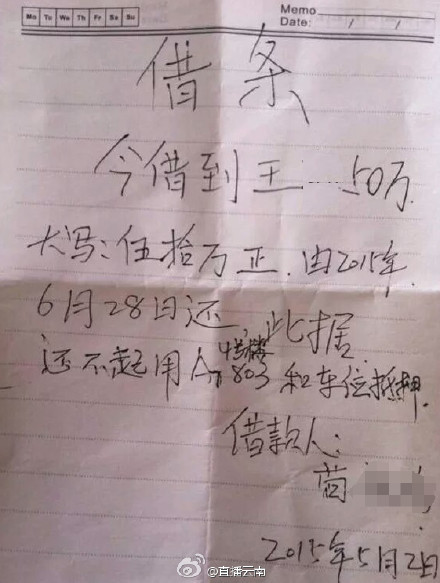 Mo Tu We Th Fr Sa Su
Memo
Date: / /
借条
今借到王 50万
大写:伍拾万正.由2015年
6月28日还,此据
4号楼
还不起用A 803和车位抵押.
借款人:
苗
2015年5月2日
@直播云南